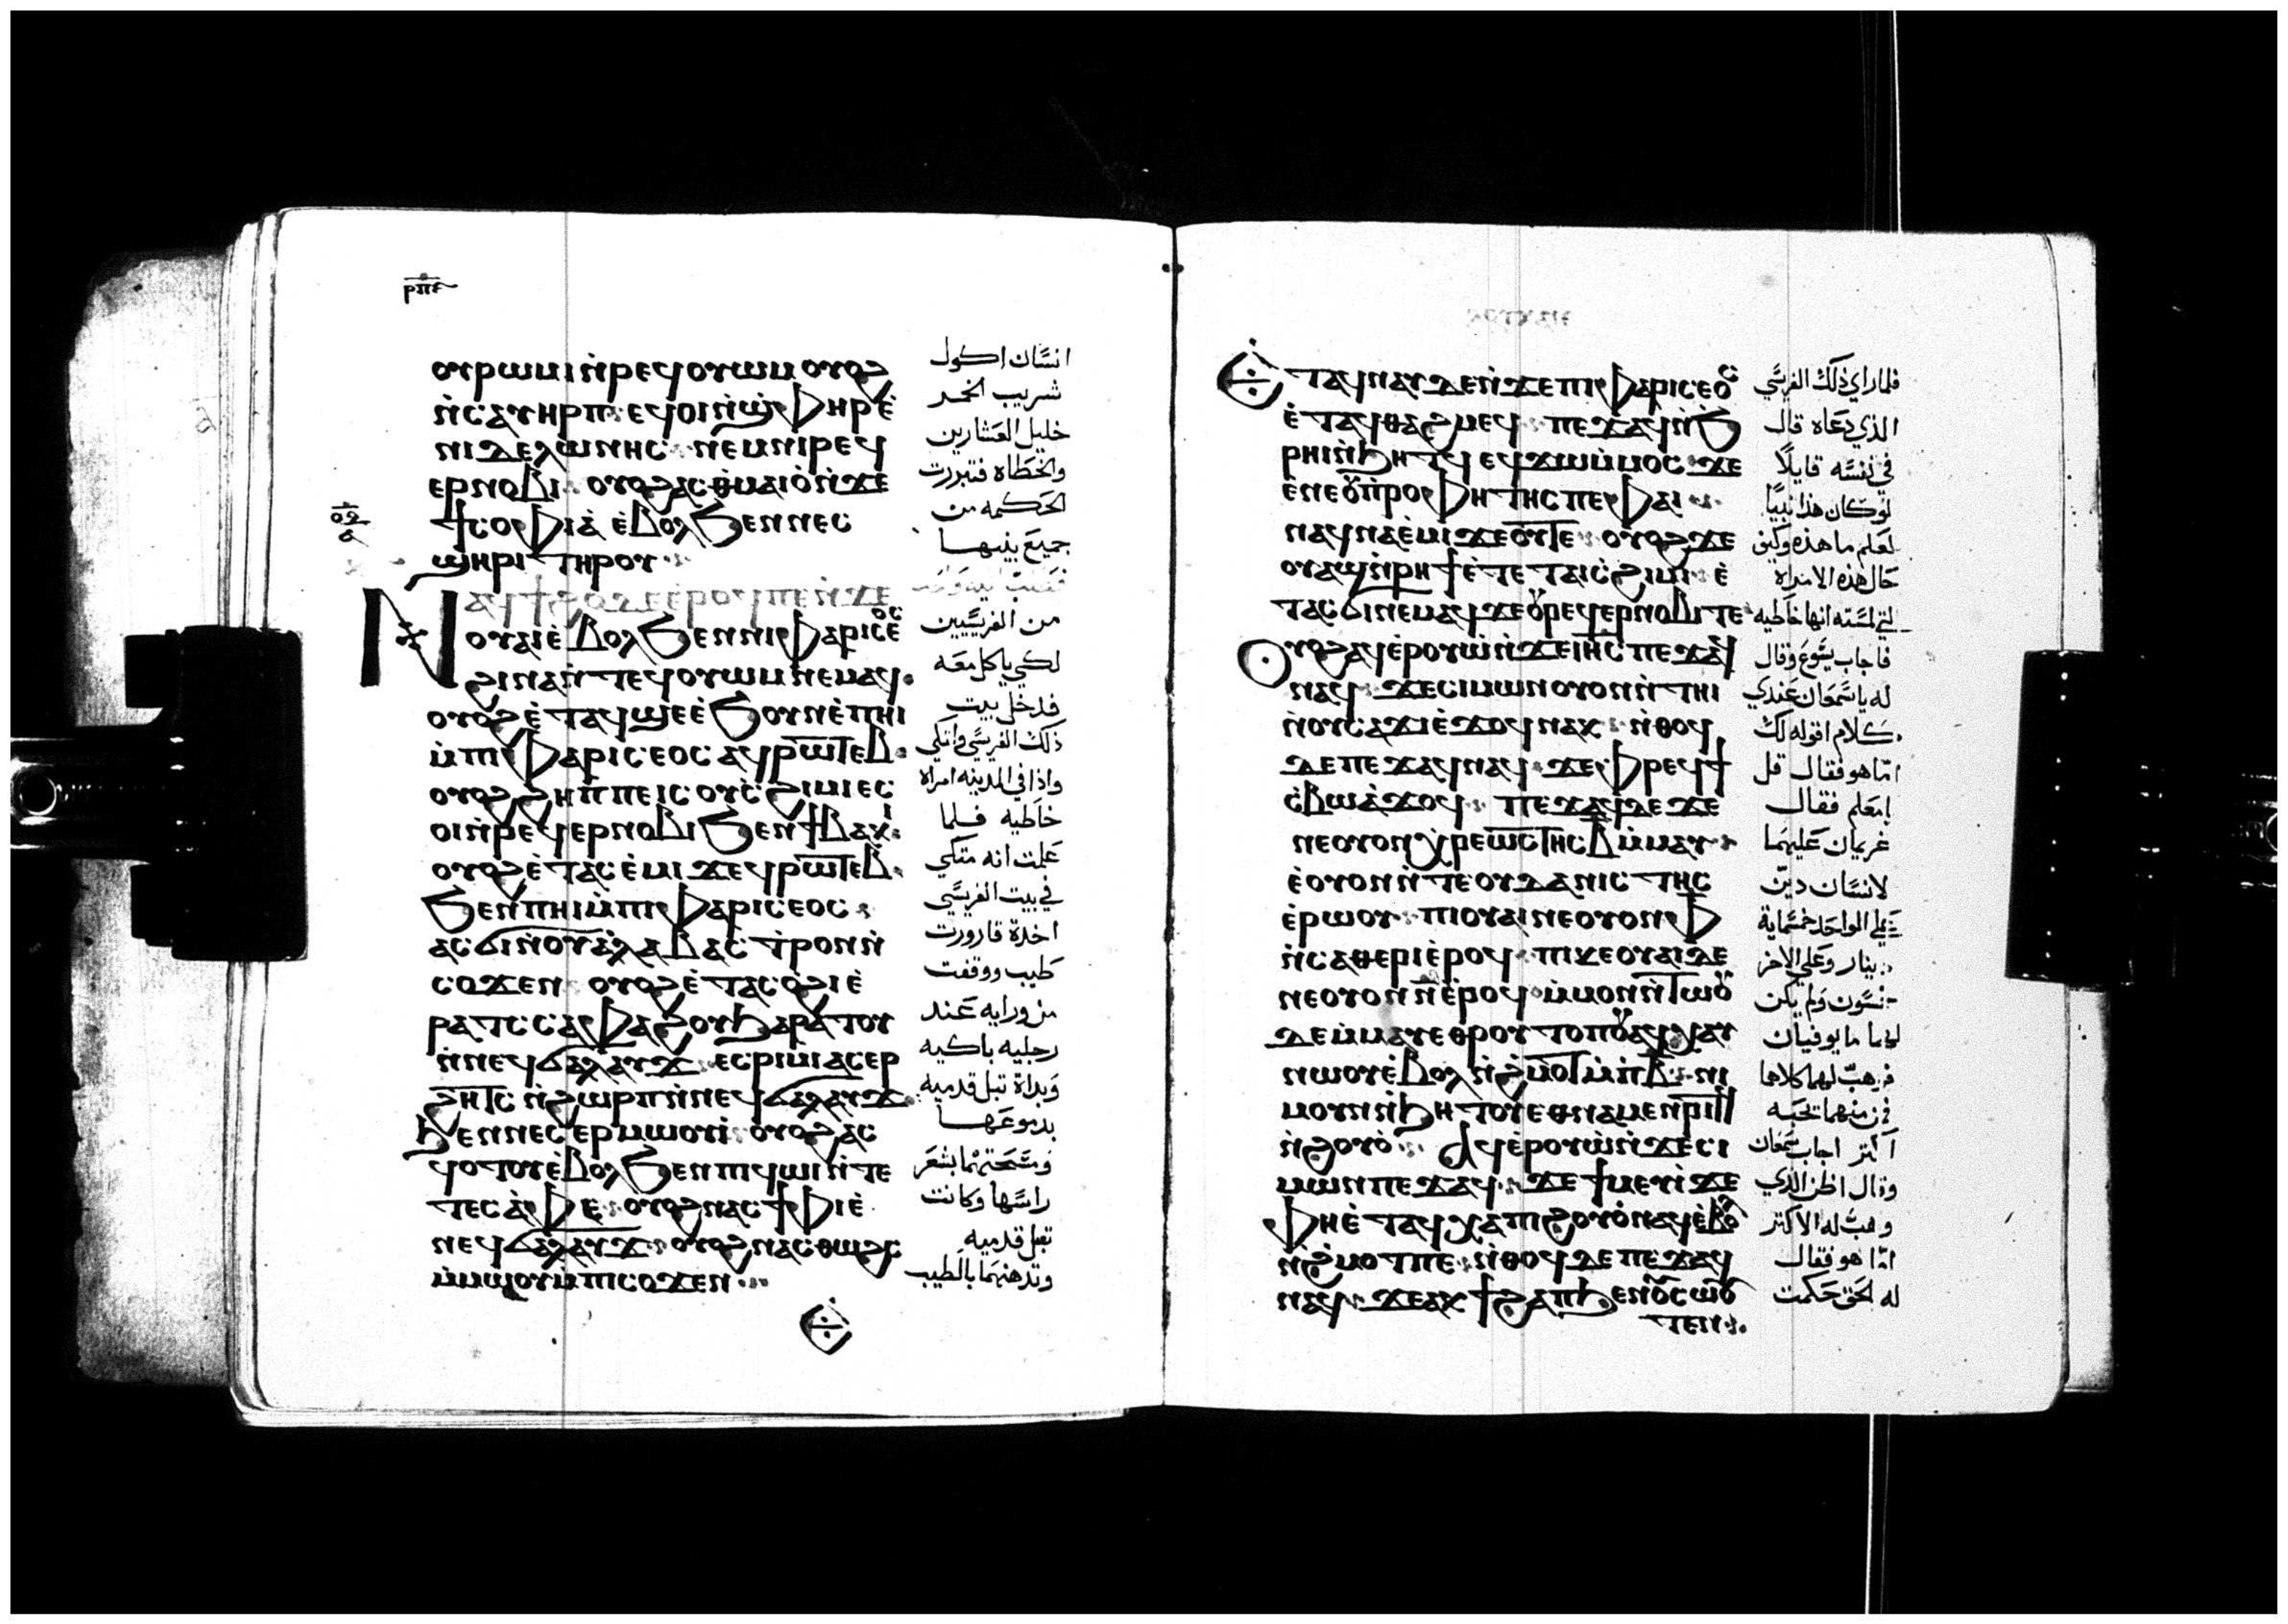 ⲣⲡⲋ
ⲟⲩⲣⲱⲙⲓ ⲛ̇ⲣⲉϥⲟⲩⲱⲙ ⲟⲩⲟϩ
ⲛ̇ⲥⲁⲩⲏⲣⲡ ⲉϥⲟⲓ ⲛ̇ϣⲫⲏⲣ ⲉ̇
ⲛⲓⲇⲉⲗⲱⲛⲏⲥ ⲛⲉⲙ ⲛⲓⲣⲉϥ
ⲉⲣⲛⲟⲃⲓ ⲟⲩⲟϩ ⲁⲥⲑⲙⲁⲓⲟ̇ ⲛ̇ϫⲉ
ϯⲥⲟⲫⲓⲁ̇ ⲉ̇ⲃⲟⲗ ϧⲉⲛ ⲛⲉⲥ
ϣⲏⲣⲓ ⲧⲏⲣⲟⲩ
ⲛⲁϥϯϩⲟ ⲇⲉ ⲉ̇ⲣⲟϥ ⲡⲉ ⲛ̇ϫⲉ
ⲟⲩⲁⲓ ⲉ̇ⲃⲟⲗ ϧⲉⲛ ⲛⲓⲫⲁⲣⲓⲥⲉⲟⲥ
ϩⲓⲛⲁ ⲛ̇ⲧⲉϥⲟⲩⲱⲙ ⲛⲉⲙⲁϥ
ⲟⲩⲟϩ ⲉ̇ⲧⲁϥϣⲉ ⲉ̇ϧⲟⲩⲛ ⲉ̇ⲡⲏⲓ
ⲙ̇ⲡⲓⲫⲁⲣⲓⲥⲉⲟⲥ ⲁϥⲣⲱⲧⲉⲃ
ⲟⲩⲟϩ ϩⲏⲡⲡⲉ ⲓⲥ ⲟⲩⲥ̇ϩⲓⲙⲓ ⲉⲥ
ⲟⲓ ⲛ̇ⲣⲉϥⲉⲣⲛⲟⲃⲓ ϧⲉⲛ ϯⲃⲁⲕⲓ
ⲟⲩⲟϩ ⲉ̇ⲧⲁⲥⲉ̇ⲙⲓ ϫⲉ ϥⲣⲱⲧⲉⲃ
ϧⲉⲛ ⲡⲏⲓ ⲙ̇ⲡⲓⲫⲁⲣⲓⲥⲉⲟⲥ
ⲁⲥϭⲓ ⲛ̇ⲟⲩⲁ̇ⲗⲁⲃⲁⲥⲧⲣⲟⲛ ⲛ̇
ⲥⲟϫⲉⲛ ⲟⲩⲟϩ ⲉ̇ⲧⲁⲥⲟ̇ϩⲓ ⲉ̇
ⲣⲁⲧⲥ ⲥⲁⲫⲁϩⲟⲩ ϧⲁⲣⲁⲧⲟⲩ
ⲛ̇ⲛⲉϥϭⲁⲗⲁⲩϫ ⲉⲥⲣⲓⲙⲓ ⲁⲥⲉⲣ
ϩⲏⲧⲥ ⲛ̇ϩⲱⲣⲡ ⲛ̇ⲛⲉϥϭⲁⲗⲁⲩϫ
ϧⲉⲛ ⲛⲉⲥⲉⲣⲙⲱⲟⲩⲓ̇ ⲟⲩⲟϩ ⲁⲥ
ϥⲟⲧⲟⲩ ⲉ̇ⲃⲟⲗ ϧⲉⲛ ⲡⲓϥⲱⲓ ⲛ̇ⲧⲉ
ⲧⲉⲥⲁ̇ⲫⲉ ⲟⲩⲟϩ ⲛⲁⲥϯⲫⲓ ⲉ̇
ⲛⲉϥϭⲁⲗⲁⲩϫ ⲟⲩⲟϩ ⲛⲁⲥⲑⲱϩⲥ
ⲙ̇ⲙⲱⲟⲩ ⲙ̇ⲡⲓⲥⲟϫⲉⲛ
انسان اكول
شريب الخمر
خليل العشارين
والخطاه فتبررت
الحكمه من
جميع بنيها
من الفريسيين
لكي ياكل معه
فدخل بيت
ذلك الفريسي واتكي
واذا في المدينه امراه
خاطيه فلما
علمت انه متكي
في بيت الفريسي
اخدة قارورت
طيب ووقفت
من ورايه عند
رجليه باكيه
وبداة تبل قدميه
بدموعها
ومسحتهما بشعر
راسها وكانت
تقبل قدميه
وتدهنهما بالطيب
ⲉ̇ⲧⲁϥⲛⲁⲩ ⲇⲉ ⲛ̇ϫⲉ ⲡⲓⲫⲁⲣⲓⲥⲉⲟⲥ
ⲉ̇ⲧⲁϥⲑⲁϩⲙⲉϥ ⲡⲉϫⲁϥ ⲛ̇ϧ
ⲣⲏⲓ ⲛ̇ϧⲏⲧϥ ⲉϥϫⲱ ⲙ̇ⲙⲟⲥ ϫⲉ
ⲉ̇ⲛⲉ ⲟⲩⲡⲣⲟⲫⲏⲧⲏⲥ ⲡⲉ ⲫⲁⲓ
ⲛⲁϥⲛⲁⲉ̇ⲙⲓ ϫⲉ ⲟⲩ ⲧⲉ ⲟⲩⲟϩ ϫⲉ
ⲟⲩⲁϣ ⲛ̇ⲣⲏϯ ⲉ̇ⲧⲉ ⲧⲁⲓⲥ̇ϩⲓⲙⲓ ⲉ̇
ⲧⲁⲥϭⲓ ⲛⲉⲙⲁϥ ϫⲉ ⲟⲩⲣⲉϥⲉⲣⲛⲟⲃⲓ ⲧⲉ
ⲟⲩⲟϩ ⲁϥⲉ̇ⲣⲟⲩⲱ̇ ⲛ̇ϫⲉ ⲓⲏⲥ ⲡⲉϫⲁϥ
ⲛⲁϥ ϫⲉ ⲥⲓⲙⲱⲛ ⲟⲩⲟⲛ ⲛ̇ⲧⲏⲓ
ⲛ̇ⲟⲩⲥⲁϫⲓ ⲉ̇ϫⲟϥ ⲛⲁⲕ ⲛ̇ⲑⲟϥ
ⲇⲉ ⲡⲉϫⲁϥ ⲛⲁϥ ϫⲉ ⲫⲣⲉϥϯ
ⲥ̇ⲃⲱ ⲁ̇ϫⲟϥ ⲡⲉϫⲁϥ ⲇⲉ ϫⲉ
ⲛⲉⲟⲩⲟⲛ ⲭⲣⲉⲱⲥⲧⲏⲥ ⲃ ⲙ̇ⲙⲁⲩ
ⲉ̇ⲟⲩⲟⲛ ⲛ̇ⲧⲉ ⲟⲩⲇⲁⲛⲓⲥⲧⲏⲥ
ⲉ̇ⲣⲱⲟⲩ ⲡⲓⲟⲩⲁⲓ ⲛⲉⲟⲩⲟⲛ ⲫ
ⲛ̇ⲥⲁⲑⲉⲣⲓ ⲉ̇ⲣⲟϥ ⲡⲓⲕⲉⲟⲩⲁⲓ ⲇⲉ
ⲛⲉⲟⲩⲟⲛ ⲛ̄ ⲉ̇ⲣⲟϥ ⲙ̇ⲙⲟⲛ ⲛ̇ⲧⲱⲟⲩ
ⲇⲉ ⲙ̇ⲙⲁⲩ ⲉⲑⲣⲟⲩⲧⲟⲡⲟⲩ ⲁϥⲭⲁⲩ
ⲛⲱⲟⲩ ⲉ̇ⲃⲟⲗ ⲛ̇ϩⲙⲟⲧ ⲙ̇ⲡⲃ ⲛⲓ
ⲙ ⲟⲩⲛ ⲛ̇ϧⲏⲧⲟⲩ ⲉⲑⲛⲁⲙⲉⲛⲣⲓⲧϥ
ⲛ̇ϩⲟⲩⲟ̇ ⲁϥⲉ̇ⲣⲟⲩⲱ̇ ⲛ̇ϫⲉ ⲥⲓ
ⲙⲱⲛ ⲡⲉϫⲁϥ ϫⲉ ϯⲙⲉⲩⲓ̇ ϫⲉ
ⲫⲏ ⲉ̇ⲧⲁϥⲭⲁ ⲡⲓϩⲟⲩⲟ̇ ⲛⲁϥ ⲉ̇ⲃⲟⲗ
ⲛ̇ϩⲙⲟⲧ ⲡⲉ ⲛ̇ⲑⲟϥ ⲇⲉ ⲡⲉϫⲁϥ
ⲛⲁϥ ϫⲉ ⲁⲕϯϩⲁⲡ ϧⲉⲛ ⲟⲩⲥⲱⲟⲩ
ⲧⲉⲛ
فلما راي ذلك الفريسي
الذي دعاه قال
في نفسه قايلا
لو كان هذا نبيا
لعلم ما هذه وكيف
حال هذه الامراه
التي لمسته انها خاطيه
فاجاب يسوع وقال
له يا سمعان عندي
كلام اقوله لك
اما هو فقال قل
يامعلم فقال
غريمان عليهما
لانسان دين
علي الواحد خمسماية
دينار وعلي الاخر
خمسون ولم يكن
لهما ما يوفيان
فوهب لهما كلاها
فمن منهما يحبه
اكتر اجاب سمعان
وقال اظن الذي
وهب له الاكتر
اما هو فقال
له الحق حكمت